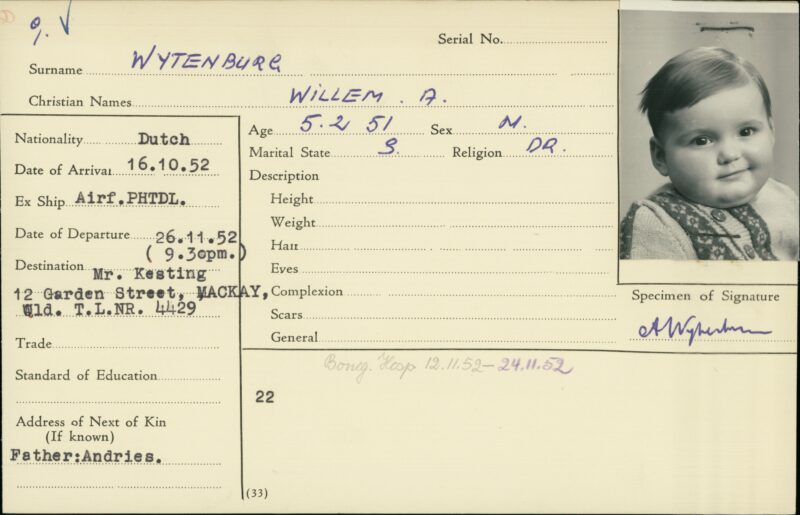 9. V
Serial No.
Surname WYTENBURG
Christian Names WILLEM. A.
Nationality Dutch
Date of Arrival 16.10.52
Ex Ship Airf.PHTDL.
Date of Departure 26.11.52
( 9.30pm.)
Destination Mr. Kesting
12 Garden Street, MACKAY,
Qld. T.L.NR. 4429
Trade
Standard of Education
Address of Next of Kin
(If known)
Father:Andries.
Age 5.2 51 Sex M.
Marital State S. Religion DR.
Description
Height
Weight
Hair
Eyes
Complexion
Scars
General
Boneg. Hosp 12.11.52 - 24.11.52
22
(33)
Specimen of Signature